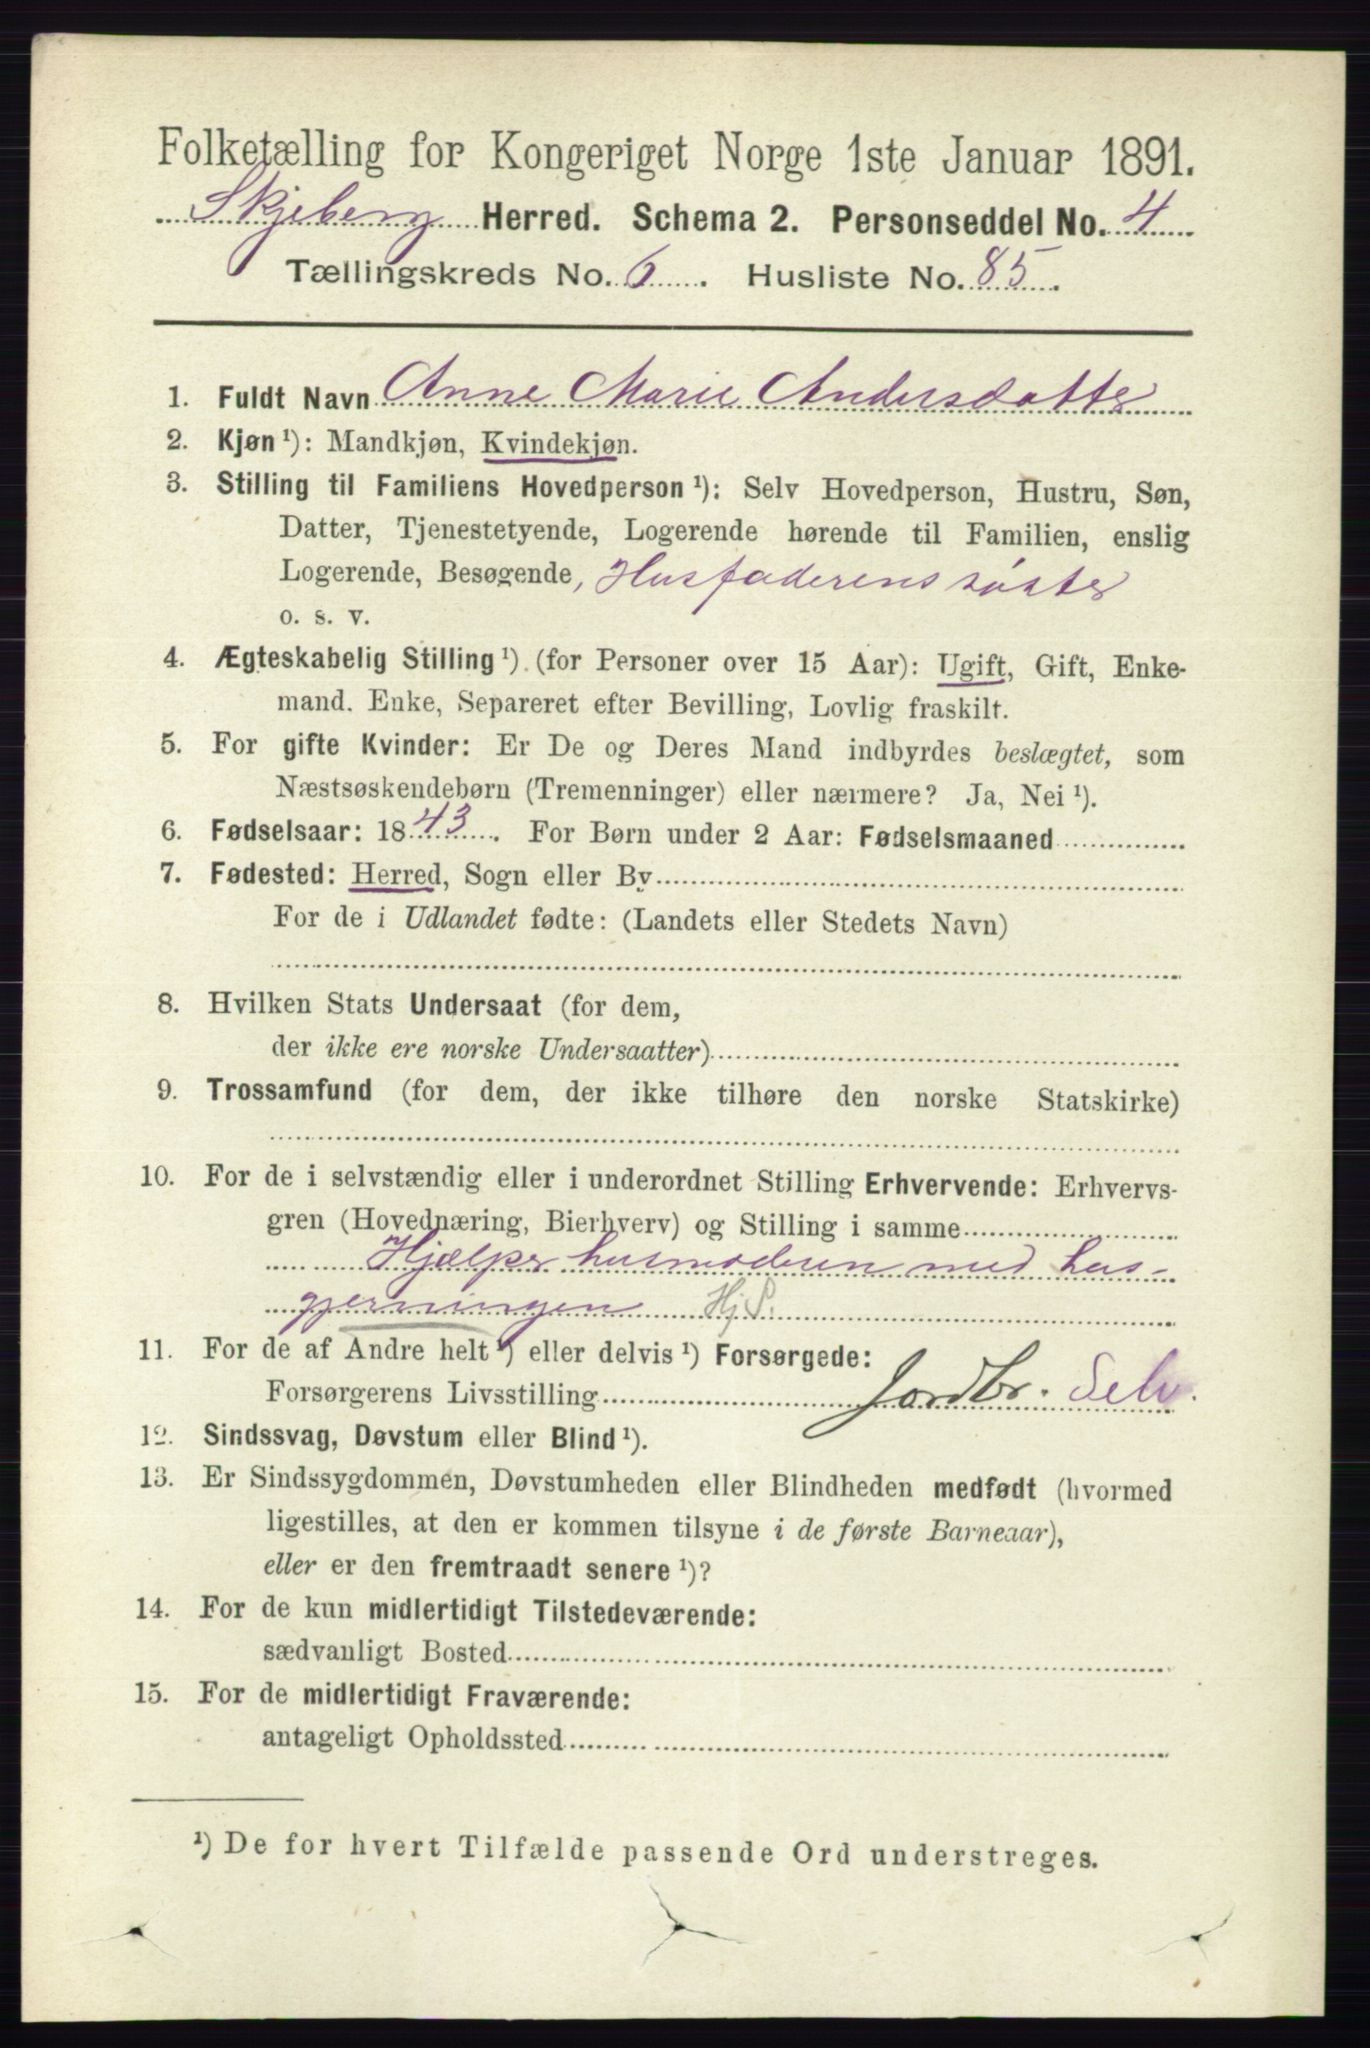 Folketælling for Kongeriget Norge 1ste Januar 1891.
Skjeberg Herred. Schema 2. Personseddel No. 4
Tællingskreds No. 6. Husliste No. 85.
1. Fuldt Navn Anne Marie Andersdatter
2. Kjøn ¹): Mandkjøn, Kvindekjøn.
3. Stilling til Familiens Hovedperson ¹): Selv Hovedperson, Hustru, Søn,
Datter, Tjenestetyende, Logerende hørende til Familien, enslig
Logerende, Besøgende, Husfaderens søster
o. s. v.
4. Ægteskabelig Stilling ¹) (for Personer over 15 Aar): Ugift, Gift, Enke-
mand. Enke, Separeret efter Bevilling, Lovlig fraskilt.
5. For gifte Kvinder: Er De og Deres Mand indbyrdes beslægtet, som
Næstsøskendebørn (Tremenninger) eller nærmere? Ja, Nei ¹).
6. Fødselsaar: 1843. For Børn under 2 Aar: Fødselsmaaned
7. Fødested: Herred, Sogn eller By
For de i Udlandet fødte: (Landets eller Stedets Navn)
8. Hvilken Stats Undersaat (for dem,
der ikke ere norske Undersaatter)
9. Trossamfund (for dem, der ikke tilhøre den norske Statskirke)
10. For de i selvstændig eller i underordnet Stilling Erhvervende: Erhvervs-
gren (Hovednæring, Bierhverv) og Stilling i samme
Hjælper husmoderen med hus-
gjerningen Hj.S.
11. For de af Andre helt ¹) eller delvis ¹) Forsørgede:
Forsørgerens Livsstilling Jordbr. Selv.
12. Sindssvag, Døvstum eller Blind ¹).
13. Er Sindssygdommen, Døvstumheden eller Blindheden medfødt (hvormed
ligestilles, at den er kommen tilsyne i de første Barneaar),
eller er den fremtraadt senere ¹)?
14. For de kun midlertidigt Tilstedeværende:
sædvanligt Bosted
15. For de midlertidigt Fraværende:
antageligt Opholdssted
¹) De for hvert Tilfælde passende Ord understreges.